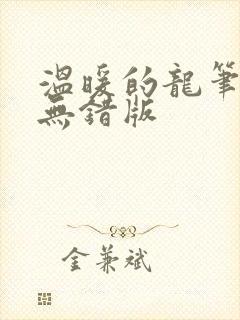 溫暖的龍筆
無錯版
金兼斌